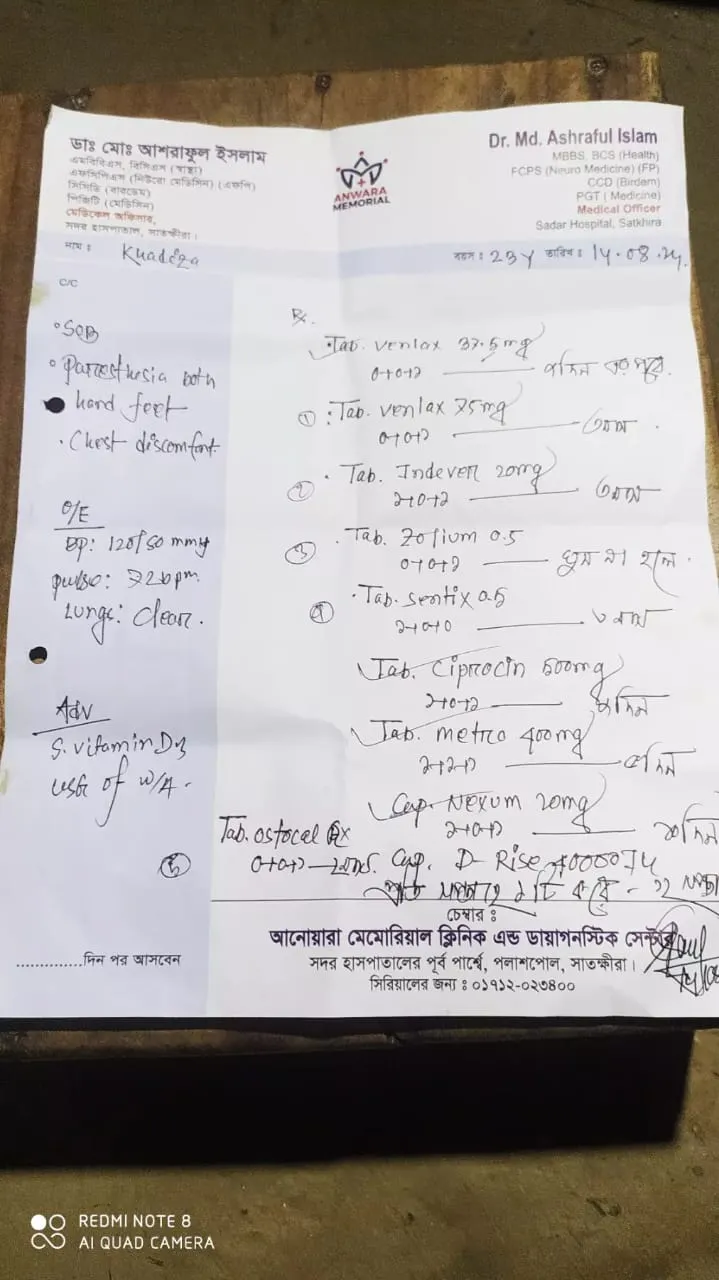 ডাঃ মোঃ আশরাফুল ইসলাম
এমবিবিএস, বিসিএস (স্বাস্থ্য)
এফসিপিএস (নিউরো মেডিসিন) (এফপি)
সিসিডি (বারডেম)
পিজিটি (মেডিসিন)
মেডিকেল অফিসার,
সদর হাসপাতাল, সাতক্ষীরা।
ANWARA
MEMORIAL
Dr. Md. Ashraful Islam
MBBS, BCS (Health)
FCPS (Neuro Medicine) (FP)
CCD (Birdem)
PGT ( Medicine)
Medical Officer
Sadar Hospital, Satkhira
নাম :
বয়স : 23 y তারিখ : 14.08.24.
C/C
SOB
Paresthesia both
hand feet
Chest discomfort.
O/E
BP:
pulse:
Lungs: Clear.
Adv
S. vitamin D3
USG of W/A.
Rx.
Tab. venlax 37.5mg
0+0+১
① Tab. venlax 75mg
0+0+১
② Tab. Indever 20mg
১+0+১
③ Tab. Zolium 0.5
0+0+১ ঘুম না হলে.
④ Tab. Sentix 0.5
১+0+0
Tab. Ciprocin 500mg
১+0+১
Tab. metro 400mg
১+১+১
Cap. Nexum 20mg
১+0+১
Tab. ostocal
0+0+১
Cap. D-Rise 40000 IU
১ টি করে - ১২
চেম্বার :
আনোয়ারা মেমোরিয়াল ক্লিনিক এন্ড ডায়াগনস্টিক সেন্টার
সদর হাসপাতালের পূর্ব পার্শ্বে, পলাশপোল, সাতক্ষীরা।
সিরিয়ালের জন্য : ০১৭১২-০২৩৪০০
..............দিন পর আসবেন
REDMI NOTE 8
AI QUAD CAMERA